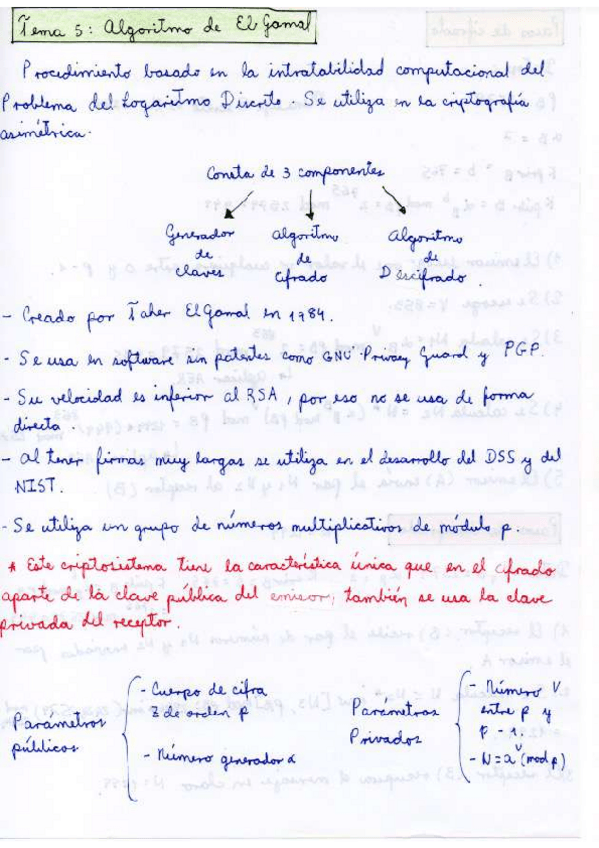 Tema 5: Algoritmo de El Gamal
Procedimiento basado en la intratabilidad computacional del
Problema del Logaritmo Discreto. Se utiliza en la criptografía
asimétrica.
Consta de 3 componentes
Generador de claves
Algoritmo de Cifrado
Algoritmo de Descifrado.
- Creado por Taher ElGamal en 1984.
- Se usa en software sin patentes como GNU Privacy Guard y PGP.
- Su velocidad es inferior al RSA, por eso no se usa de forma
directa.
- Al tener firmas muy largas se utiliza en el desarrollo del DSS y del
NIST.
- Se utiliza un grupo de números multiplicativos de módulo p.
* Este criptosistema tiene la característica única que en el cifrado
aparte de la clave pública del emisor, también se usa la clave
privada del receptor.
Parámetros públicos
- Cuerpo de cifra
Z de orden p
- Número generador α
Parámetros Privados
- Número V.
entre p y
p - 1.